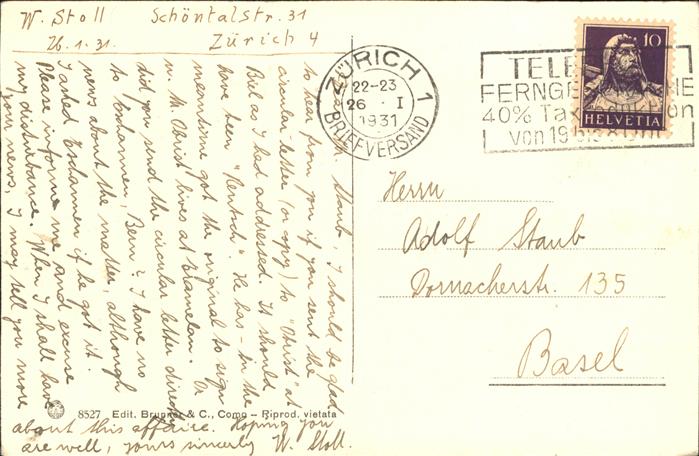 W. Stoll Schöntalstr. 31
26.1.31. Zürich 4
Staub, I should be glad
to hear from you if you sent the
circular letter (or copy) to "Obrist" at
But as I had addressed. It should
have been "Rentsch". He has - in the
meantime got the original to sign
Mr. Obrist lives at Grameten. Or
did you send the circular letter direct
to Eschannen, Bern? I have no
news about the matter, although
I asked Eschannen if he got it.
Please inform me and excuse
my disturbance. When I shall have
your news, I may tell you more
about this affaire. Hoping you
are well, yours sincerly W. Stoll.
8527 Edit. Brunner & C., Como - Riprod. vietata
ZÜRICH 1
22-23
26. I
1931
BRIEFVERSAND
TELE
FERNGE
40% Tax
von 19 bis 8
10
HELVETIA
Herrn
Adolf Staub
Dornacherstr. 135
Basel